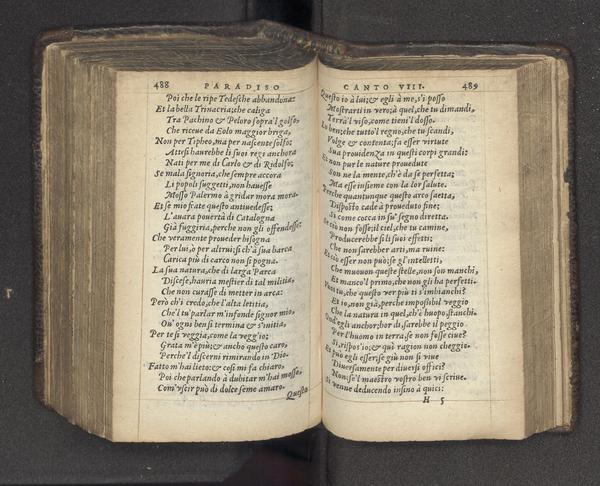 488 PARADISO
Poi che le ripe Tedesche abbandona:
Et la bella Trinacria; che caliga
Tra Pachino & Peloro sopra'l golfo,
Che riceue da Eolo maggior briga,
Non per Tipheo, ma per nascente solfo;
Attesi haurebbe li suoi regi anchora
Nati per me di Carlo & di Ridolfo;
Se mala signoria, che sempre accora
Li popoli suggetti, non hauesse
Mosso Palermo à gridar mora mora.
Et se mio frate questo antiuedesse;
L'auara pouertà di Catalogna
Già fuggiria, perche non gli offendesse:
Che veramente proueder bisogna
Per lui, ò per altrui; si ch'à sua barca
Carica più di carco non si pogna.
La sua natura, che di larga Parca
Discese, hauria mestier di tal militia,
Che non curasse di metter in arca:
Però ch'i credo, che l'alta letitia,
Che'l tu parlar m'infonde signor mio,
Ou' ogni ben si termina & s'initia,
Per te si veggia, come la vegg'io;
Grata m'è più; & ancho questo caro,
Perche'l discerni rimirando in Dio.
Fatto m'hai lieto; & cosi mi fa chiaro,
Poi che parlando à dubitar m'hai mosso,
Com'vscir può di dolce seme amaro.
Questo
CANTO VIII. 489
Questo io à lui; & egli à me, s'i posso
Mostrarti in vero; à quel, che tu dimandi,
Terrà'l viso, come tieni'l dosso.
Lo ben; che tutto'l regno, che tu scandi,
Volge & contenta; fa esser virtute
Sua prouidenza in questi corpi grandi:
Et non pur le nature prouedute
Son ne la mente, ch'è da se perfetta;
Ma esse insieme con la lor salute.
Perche quantunque questo arco saetta,
Disposto cade à proueduto fine;
Si come cocca in su' segno diretta.
Se ciò non fosse; il ciel, che tu camine,
Producerebbe si li suoi effetti;
Che non sarebber arti, ma ruine:
Et ciò esser non può; se gl'intelletti,
Che muouon queste stelle, non son manchi,
Et manco'l primo, che non gli ha perfetti.
Vuoi tu, che questo ver più ti s'imbianchi?
Et io, non già, perche impossibil veggio
Che la natura in quel, ch'è huopo, stanchi.
Ond'egli anchor; hor di, sarebbe il peggio
Per l'huomo in terra, se non fosse ciue?
Si, rispos'io; & quì ragion non cheggio.
Et può egli esser; se giù non si viue
Diuersamente per diuersi offici?
Non: se'l maestro vostro ben vi scriue.
Si venne deducendo insino à quici:
H 5